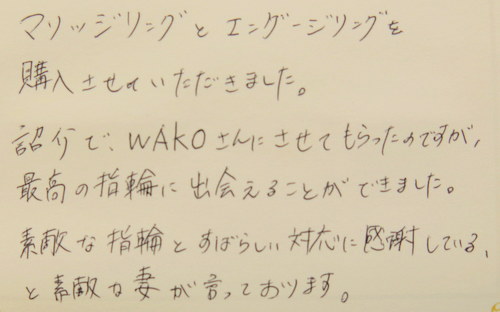 マリッジリングとエンゲージリングを
購入させていただきました。
紹介で、WAKOさんにさせてもらったのですが、
最高の指輪に出会えることができました。
素敵な指輪とすばらしい対応に感謝している、
と素敵な妻が言っております。